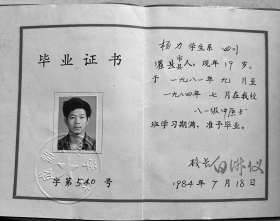 毕业证书
字第540号
杨力 学生系 四川
县市 人，现年19岁。
于一九八一年九月至
一九八四年七月在我校
八一级中医士
班学习期满，准予毕业。
校长
1984年7月18日